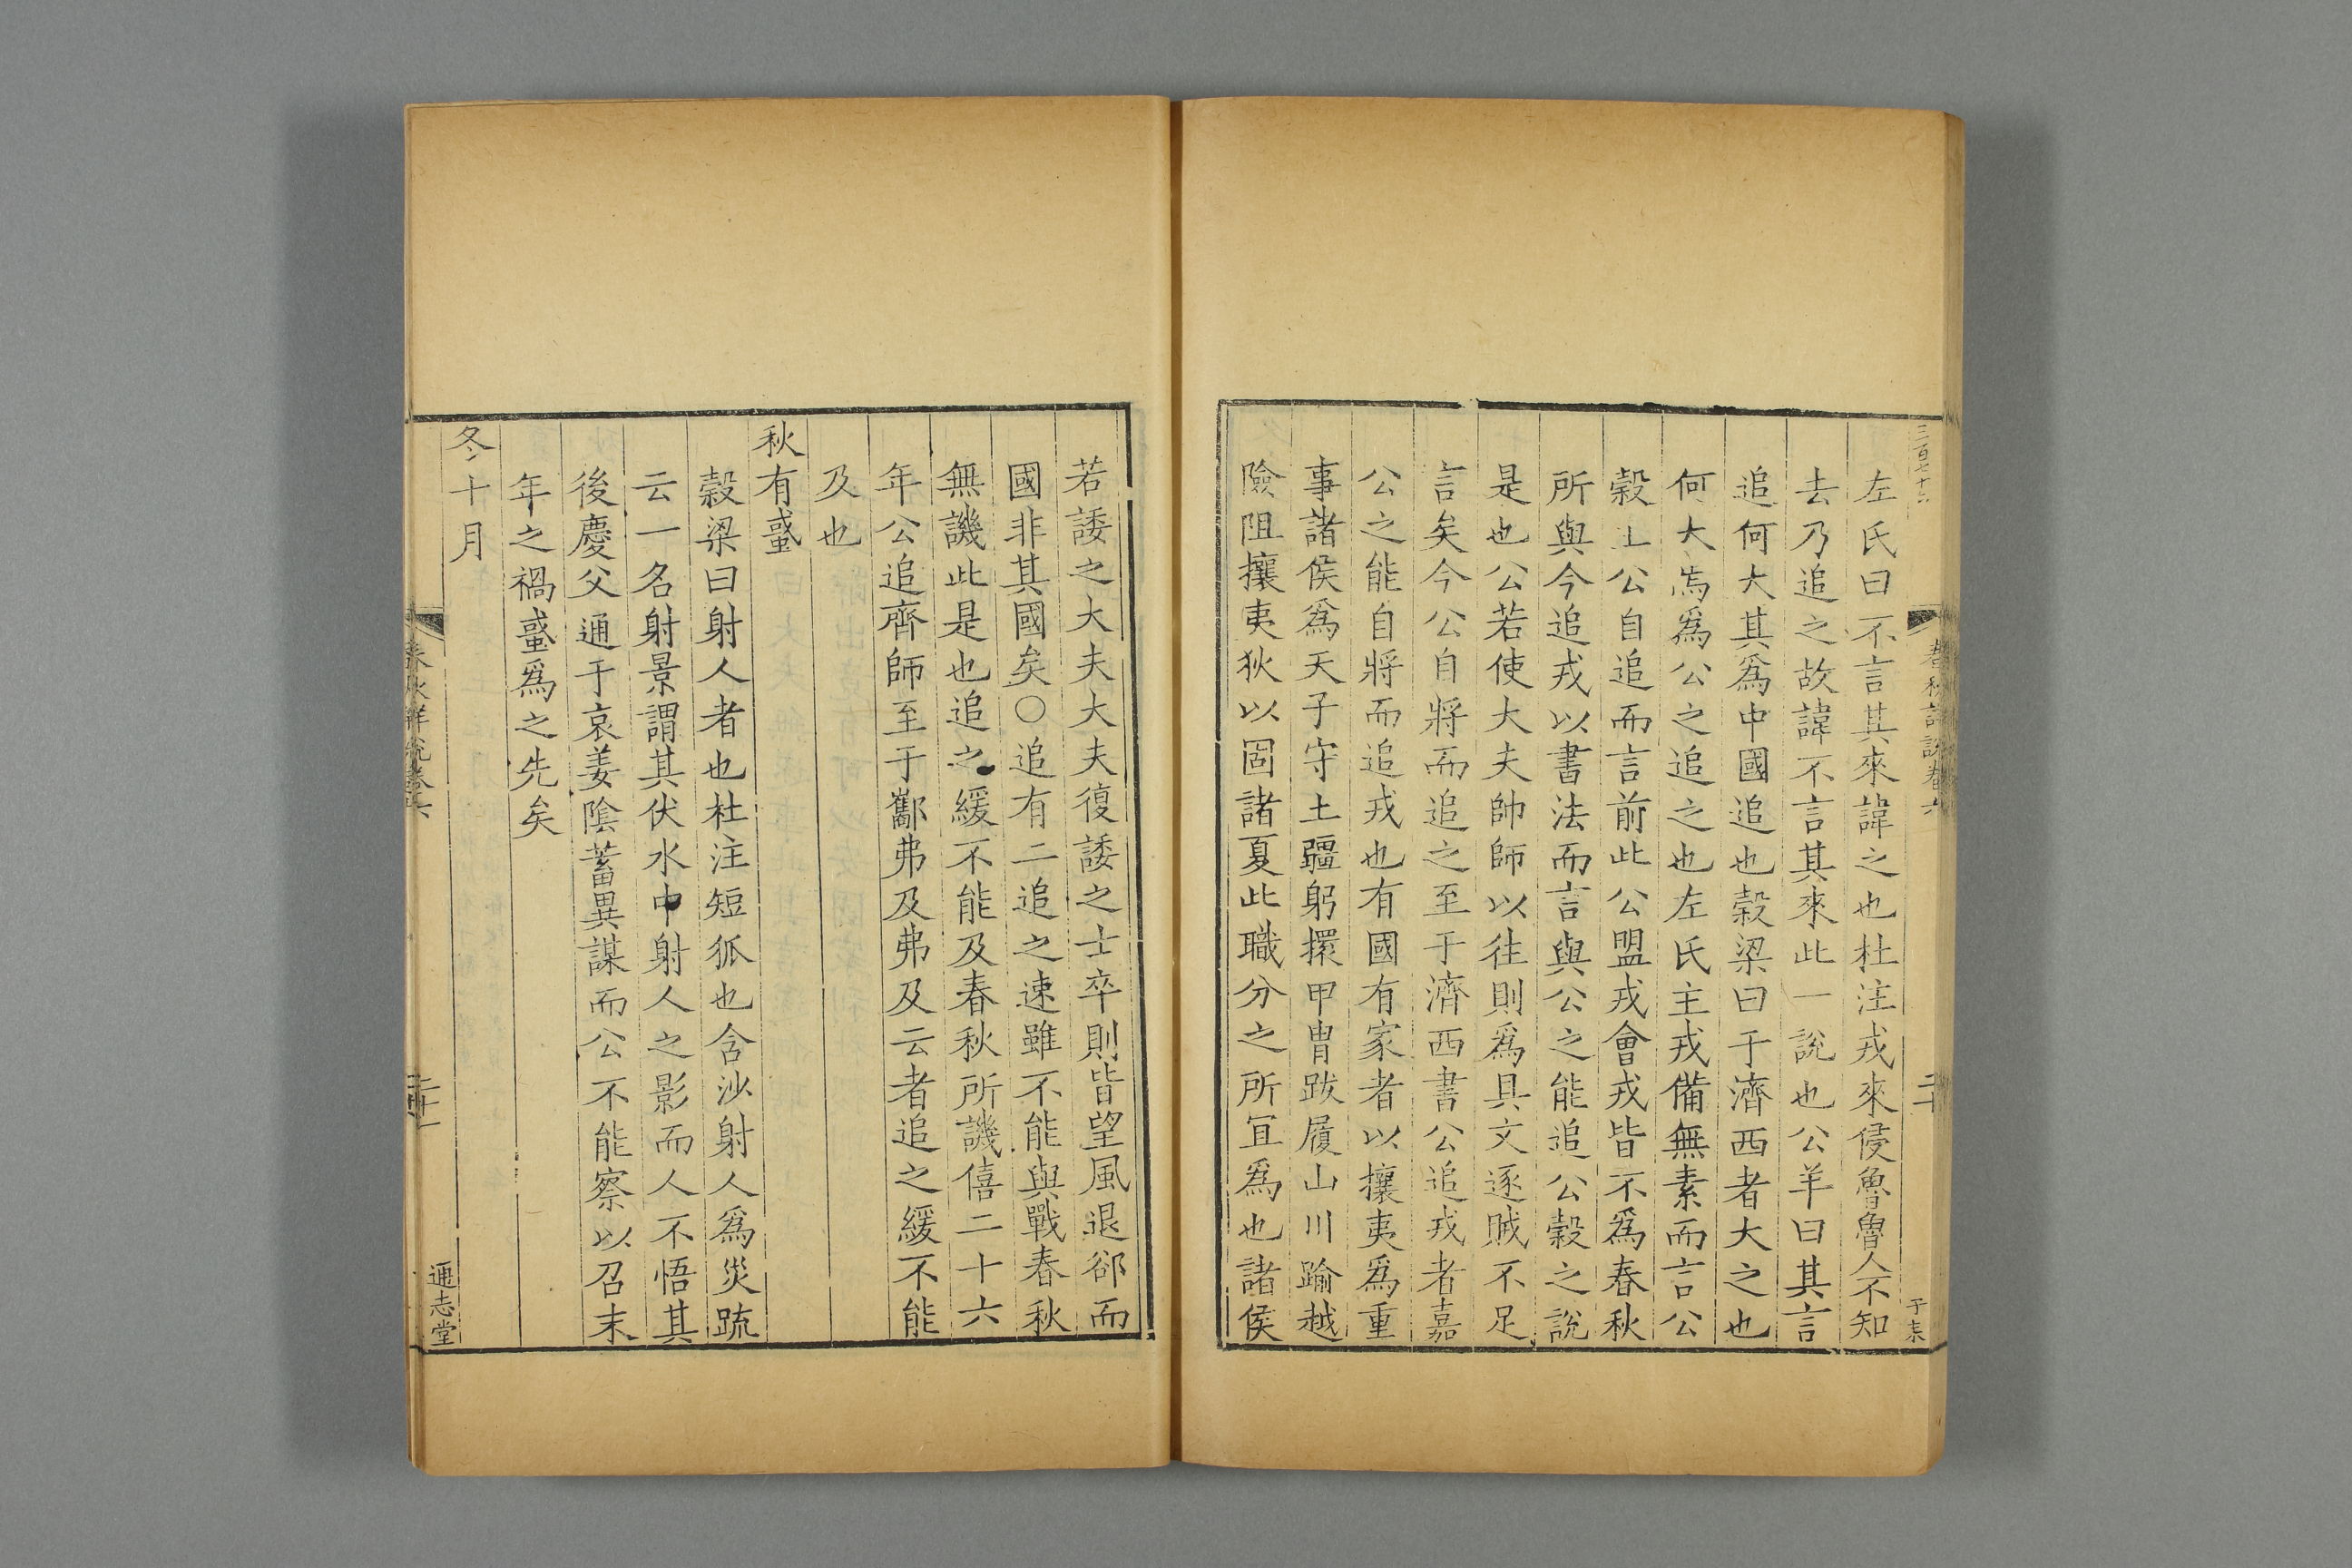 三百七十六
春秋詳說卷六
二十
左氏曰不言其來諱之也杜注戎來侵魯魯人不知
去乃追之故諱不言其來此一說也公羊曰其言
追何大其爲中國追也榖梁曰于濟西者大之也
何大焉爲公之追之也左氏主戎備無素而言公
榖主公自追而言前此公盟戎會戎皆不爲春秋
所與今追戎以書法而言與公之能追公榖之說
是也公若使大夫帥師以往則爲具文逐賊不足
言矣今公自將而追之至于濟西書公追戎者嘉
公之能自將而追戎也有國有家者以攘夷爲重
事諸侯爲天子守土疆躬擐甲冑跋履山川踰越
險阻攘夷狄以固諸夏此職分之所宜爲也諸侯
若諉之大夫大夫復諉之士卒則皆望風退卻而
國非其國矣○追有二追之速雖不能與戰春秋
無譏此是也追之緩不能及春秋所譏僖二十六
年公追齊師至于酅弗及弗及云者追之緩不能
及也
秋有蜮
榖梁曰射人者也杜注短狐也含沙射人爲災疏
云一名射景謂其伏水中射人之影而人不悟其
後慶父通于哀姜陰蓄異謀而公不能察以召末
年之禍蜮爲之先矣
冬十月
春秋詳說卷六
二十一
通志堂